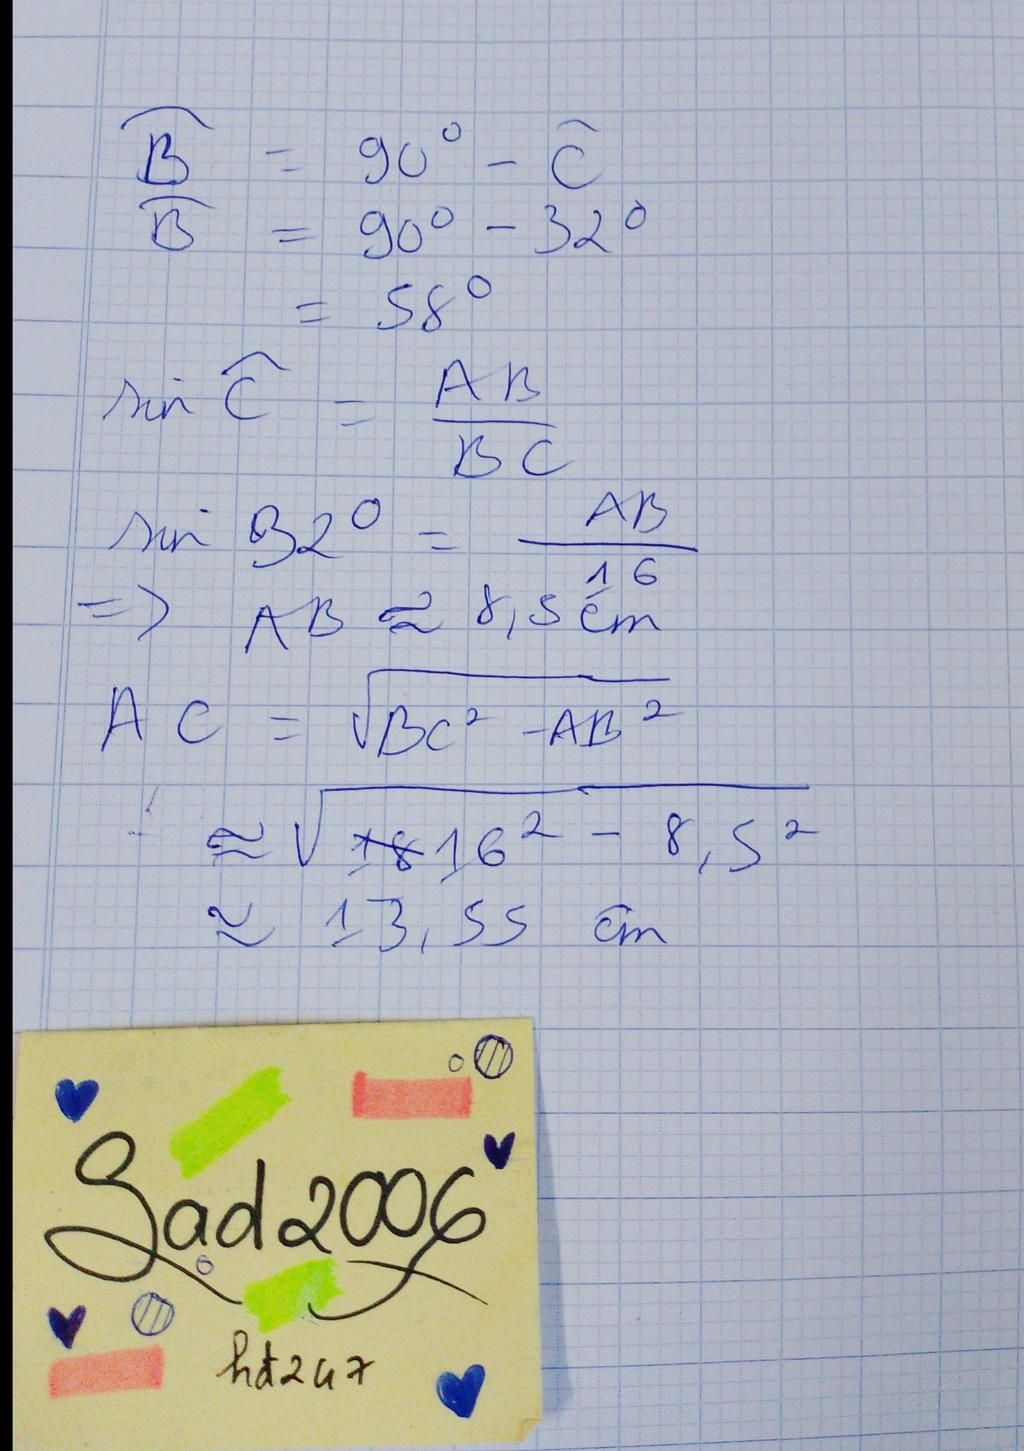 B̂ = 90° - Ĉ
B̂ = 90° - 32°
= 58°
sin Ĉ = AB / BC
sin 32° = AB / 16
=> AB ≈ 8,5 cm
AC = √(BC² - AB²)
≈ √(18 16² - 8,5²)
≈ 13,55 cm
Sad2006
hd247